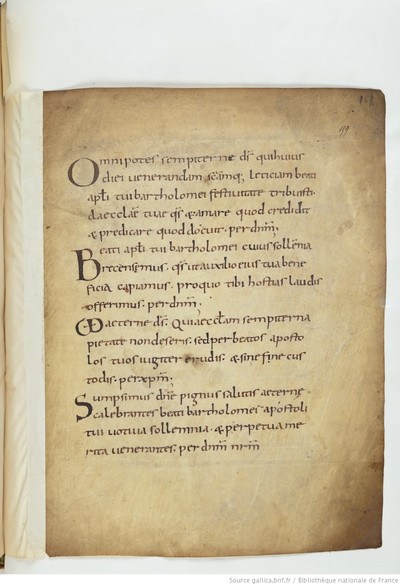 199
Omnipotes sempiterne dś quihuius
diei uenerandam scāmq; leticiam beati
apłi tui bartholomei festiuitate tribuisti.
da eccłae tuae qś & amare quod credidit
& predicare quod docuit. per dnm̄.
Beati apłi tui bartholomei cuius sollemnia
Recensemus. qś ut auxilio eius tua bene
ficia capiamus. pro quo tibi hostias laudis
offerimus. per dnm̄.
aeterne dś. Qui aeccłam sempiterna
pietate non deseris. sed per beatos aposto
los tuos iugiter erudis. & sine fine cus
todis. per xpm̄;
Sumpsimus dn̄e pignus salutis aeterne
calebrantes beati bartholomei apostoli
tui uotiua sollemnia. & perpetua me
rita uenerantes. per dnm̄ nrm̄
Source gallica.bnf.fr / Bibliothèque nationale de France